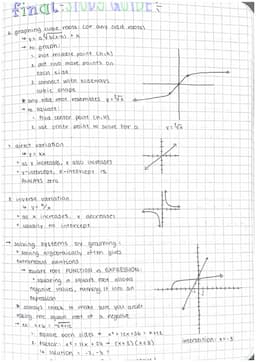 final: STUDY GUIDE
6. graphing cube roots (or any odd roots)
↳ y = a∛b(x-h) + k
↳ to graph:
1. plot middle point (h,k)
2. plot two more points on
each side
3. connect with sideways
cubic shape
* any odd root resembles y=∛x
↳ to square:
1. find center point (h,k)
2. use other point to solve for a
y = ∛x
7. direct variation
↳ y = kx
* as x increases, y also increases
* y-intercept, x-intercept is
ALWAYS zero
8. inverse variation
↳ y = k/x
* as x increases, y decreases
* usually no intercept
→ solving systems by graphing:
* solving algebraically often gives
extraneous solutions
↳ square root FUNCTION vs EXPRESSION
* squaring a square root allows
negative values, making it into an
expression
* always check to make sure you aren't
taking the square root of a negative
1. square both sides → x²+12x+36 = x+12
2. factor: x²+11x+24 → (x+3)(x+8)
↳ solution: -3, -8
intersection: x=-3